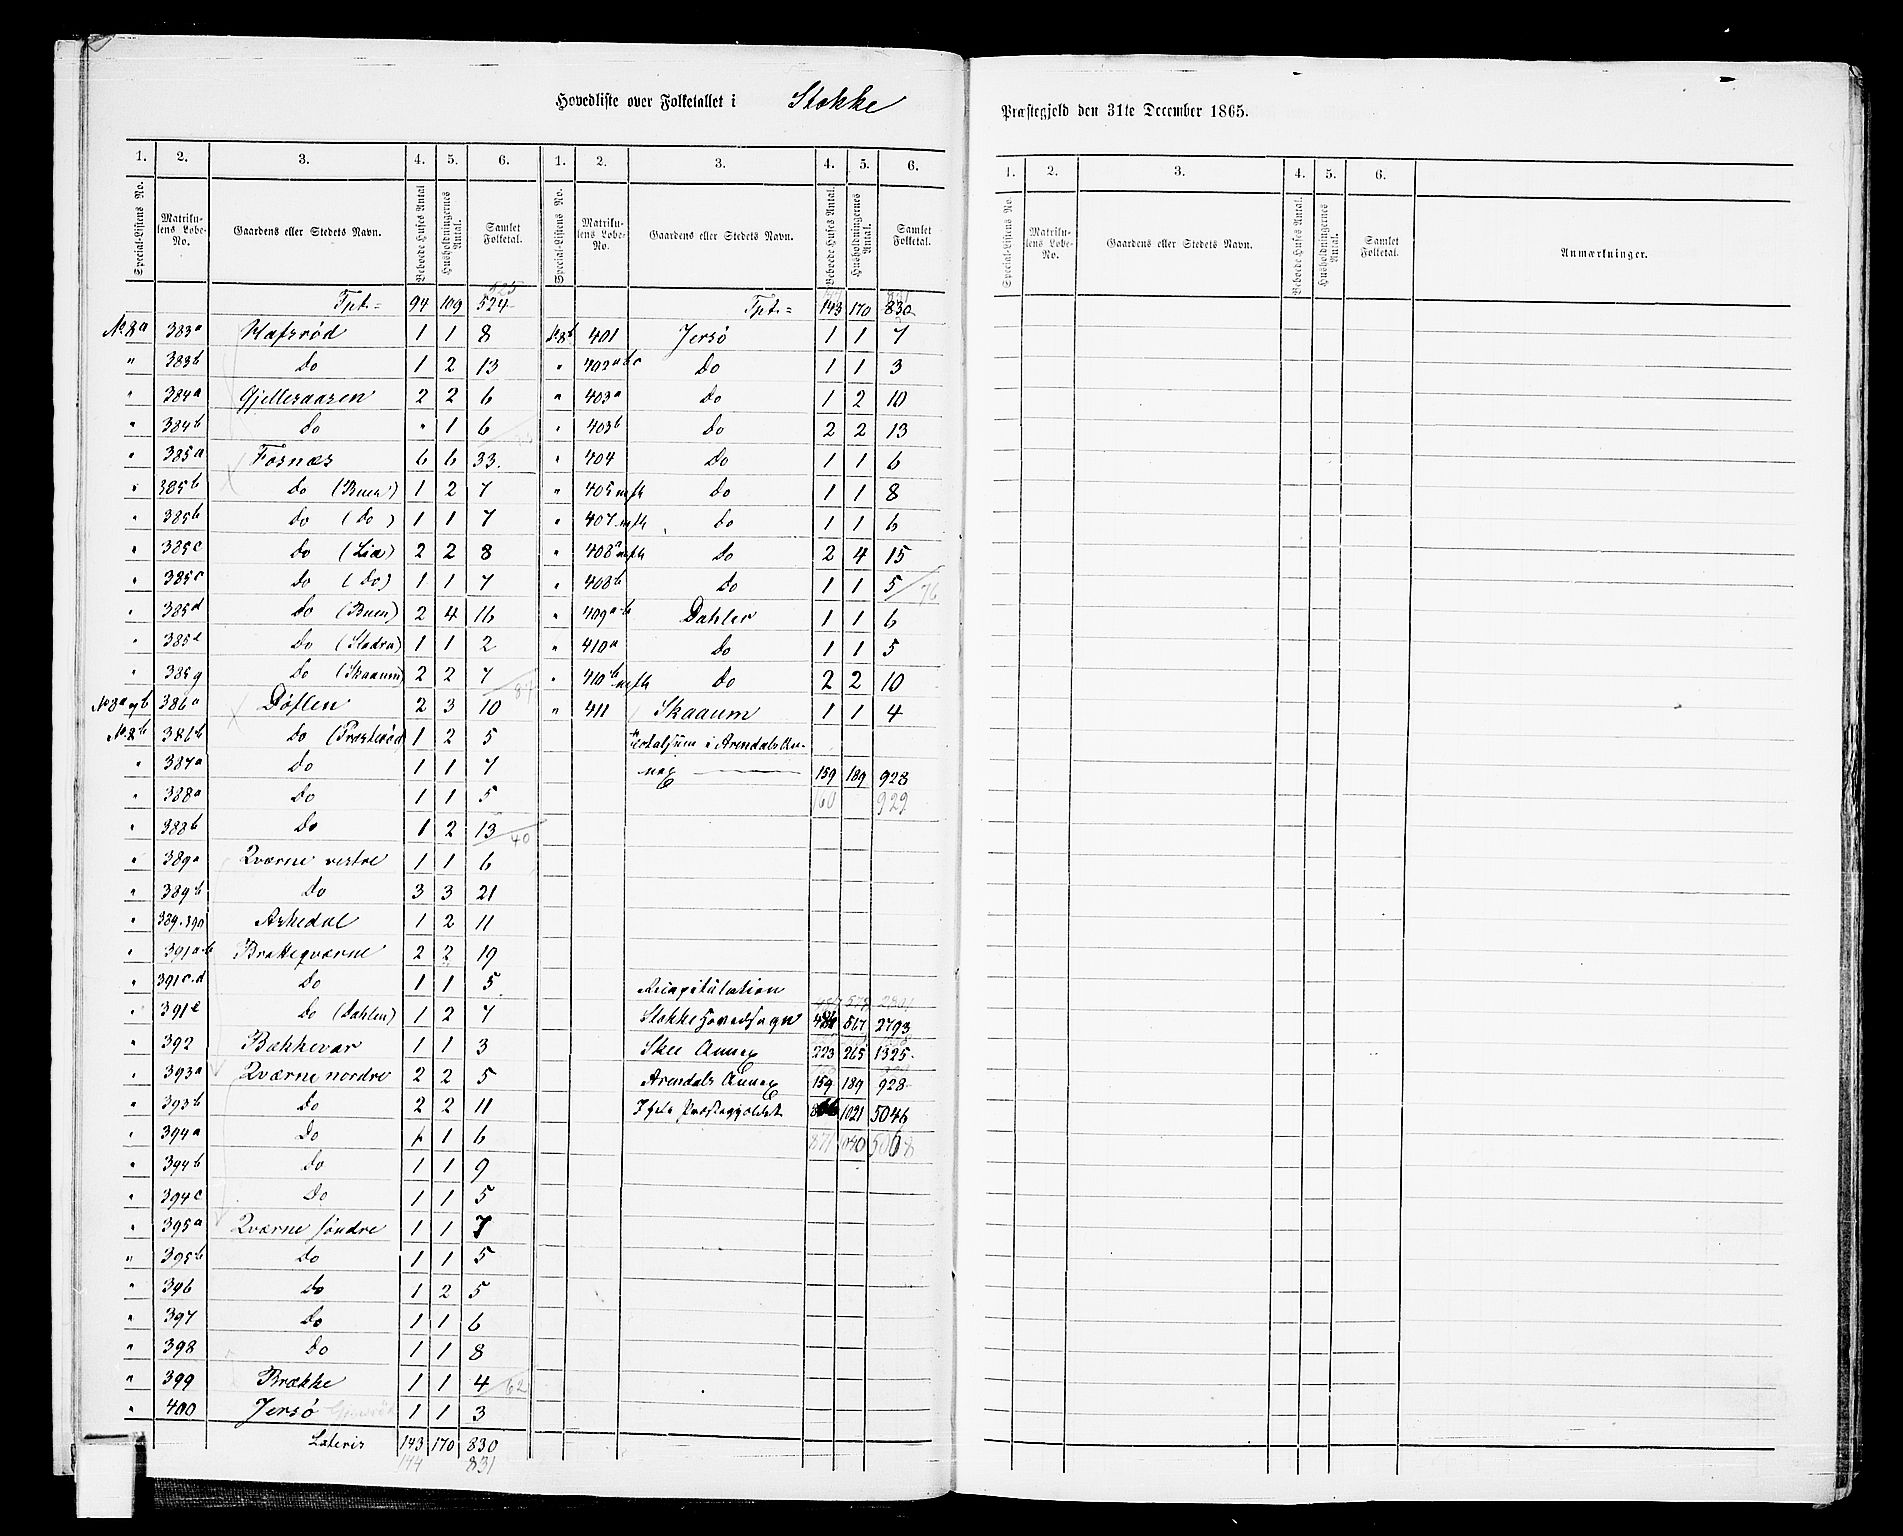 Hovedliste over Folketallet i Stokke Præstegjeld den 31te December 1865.
1. 2. 3. 4. 5. 6. 1. 2. 3. 4. 5. 6.
Special-Listens No. Matrikulens Løbe-No. Gaardens eller Stedets Navn. Beboede Huses Antal Husholdningernes Antal. Samlet Folketal. Special-Listens No. Matrikulens Løbe-No. Gaardens eller Stedets Navn. Beboede Huses Antal. Husholdningernes Antal. Samlet Folketal.
525
Tpt. 94 109 524
No 8a 383a Hafsrød 1 1 8
" 383b Do 1 2 13
" 384a Gjellesaasen 2 2 6
" 384b Do " 1 6
" 385a Fosnæs 6 6 33.
" 385b Do (Buen) 1 2 7
" 385b Do (Do) 1 1 7
" 385c Do (Lia) 2 2 8
" 385c Do (Do) 1 1 7
" 385d Do (Buen) 2 4 16
" 385e Do (Slodra) 1 1 2
" 385g Do (Skaaum) 2 2 7
No 8a og b 386a Døflen 2 3 10
No 8b 386b Do (Præsterød 1 2 5
" 387a Do 1 1 7
" 388a Do 1 1 5
" 388b Do 1 2 13
40
" 389a Qværne vestre 1 1 6
" 389b Do 3 3 21
" 389.390 Askedal 1 2 11
" 391a-b Bratteqværne 2 2 19
" 391c.d Do 1 1 5
" 391e Do (Dahlen) 1 2 7
" 392 Bækkevar 1 1 3
" 393a Qværne nordre 2 2 5
" 393b Do 2 2 11
" 394a Do 1 1 6
" 394b Do 1 1 9
" 394c Do 1 1 5
" 395a Qværne søndre 1 1 7
" 395b Do 1 1 5
" 396 Do 1 2 5
" 397 Do 1 1 6
" 398 Do 1 1 8
" 399 Brække 1 1 4
62
" 400 Jersø 1 1 3
Lateris 143 170 830
144 831
Tpt. 143 170 830
No 8b 401 Jersø 1 1 7
" 402a b c Do 1 1 3
" 403a Do 1 2 10
" 403b Do 2 2 13
" 404 Do 1 1 6
" 405 mfl Do 1 1 8
" 407 mfl Do 1 1 6
" 408a mfl Do 2 4 15
" 408b Do 1 1 5
76
" 409a-b Dahler 1 1 6
" 410a Do 1 1 5
" 410b mfl Do 2 2 10
" 411 Skaaum 1 1 4
Totalsum i Arendals An-
nex 159 189 928
160 929
Recapitulation
Stokke Hovedsogn 567 2793
Skee Annex 223 265 1325
Arendals Annex 159 189 928
I hele Præstegjeldet 1021 5046
871 1040 5068
1. 2. 3. 4. 5. 6.
Special-Listens No. Matrikulens Løbe-No. Gaardens eller Stedets Navn. Beboede Huses Antal. Husholdningernes Antal. Samlet Folketal. Anmærkninger.